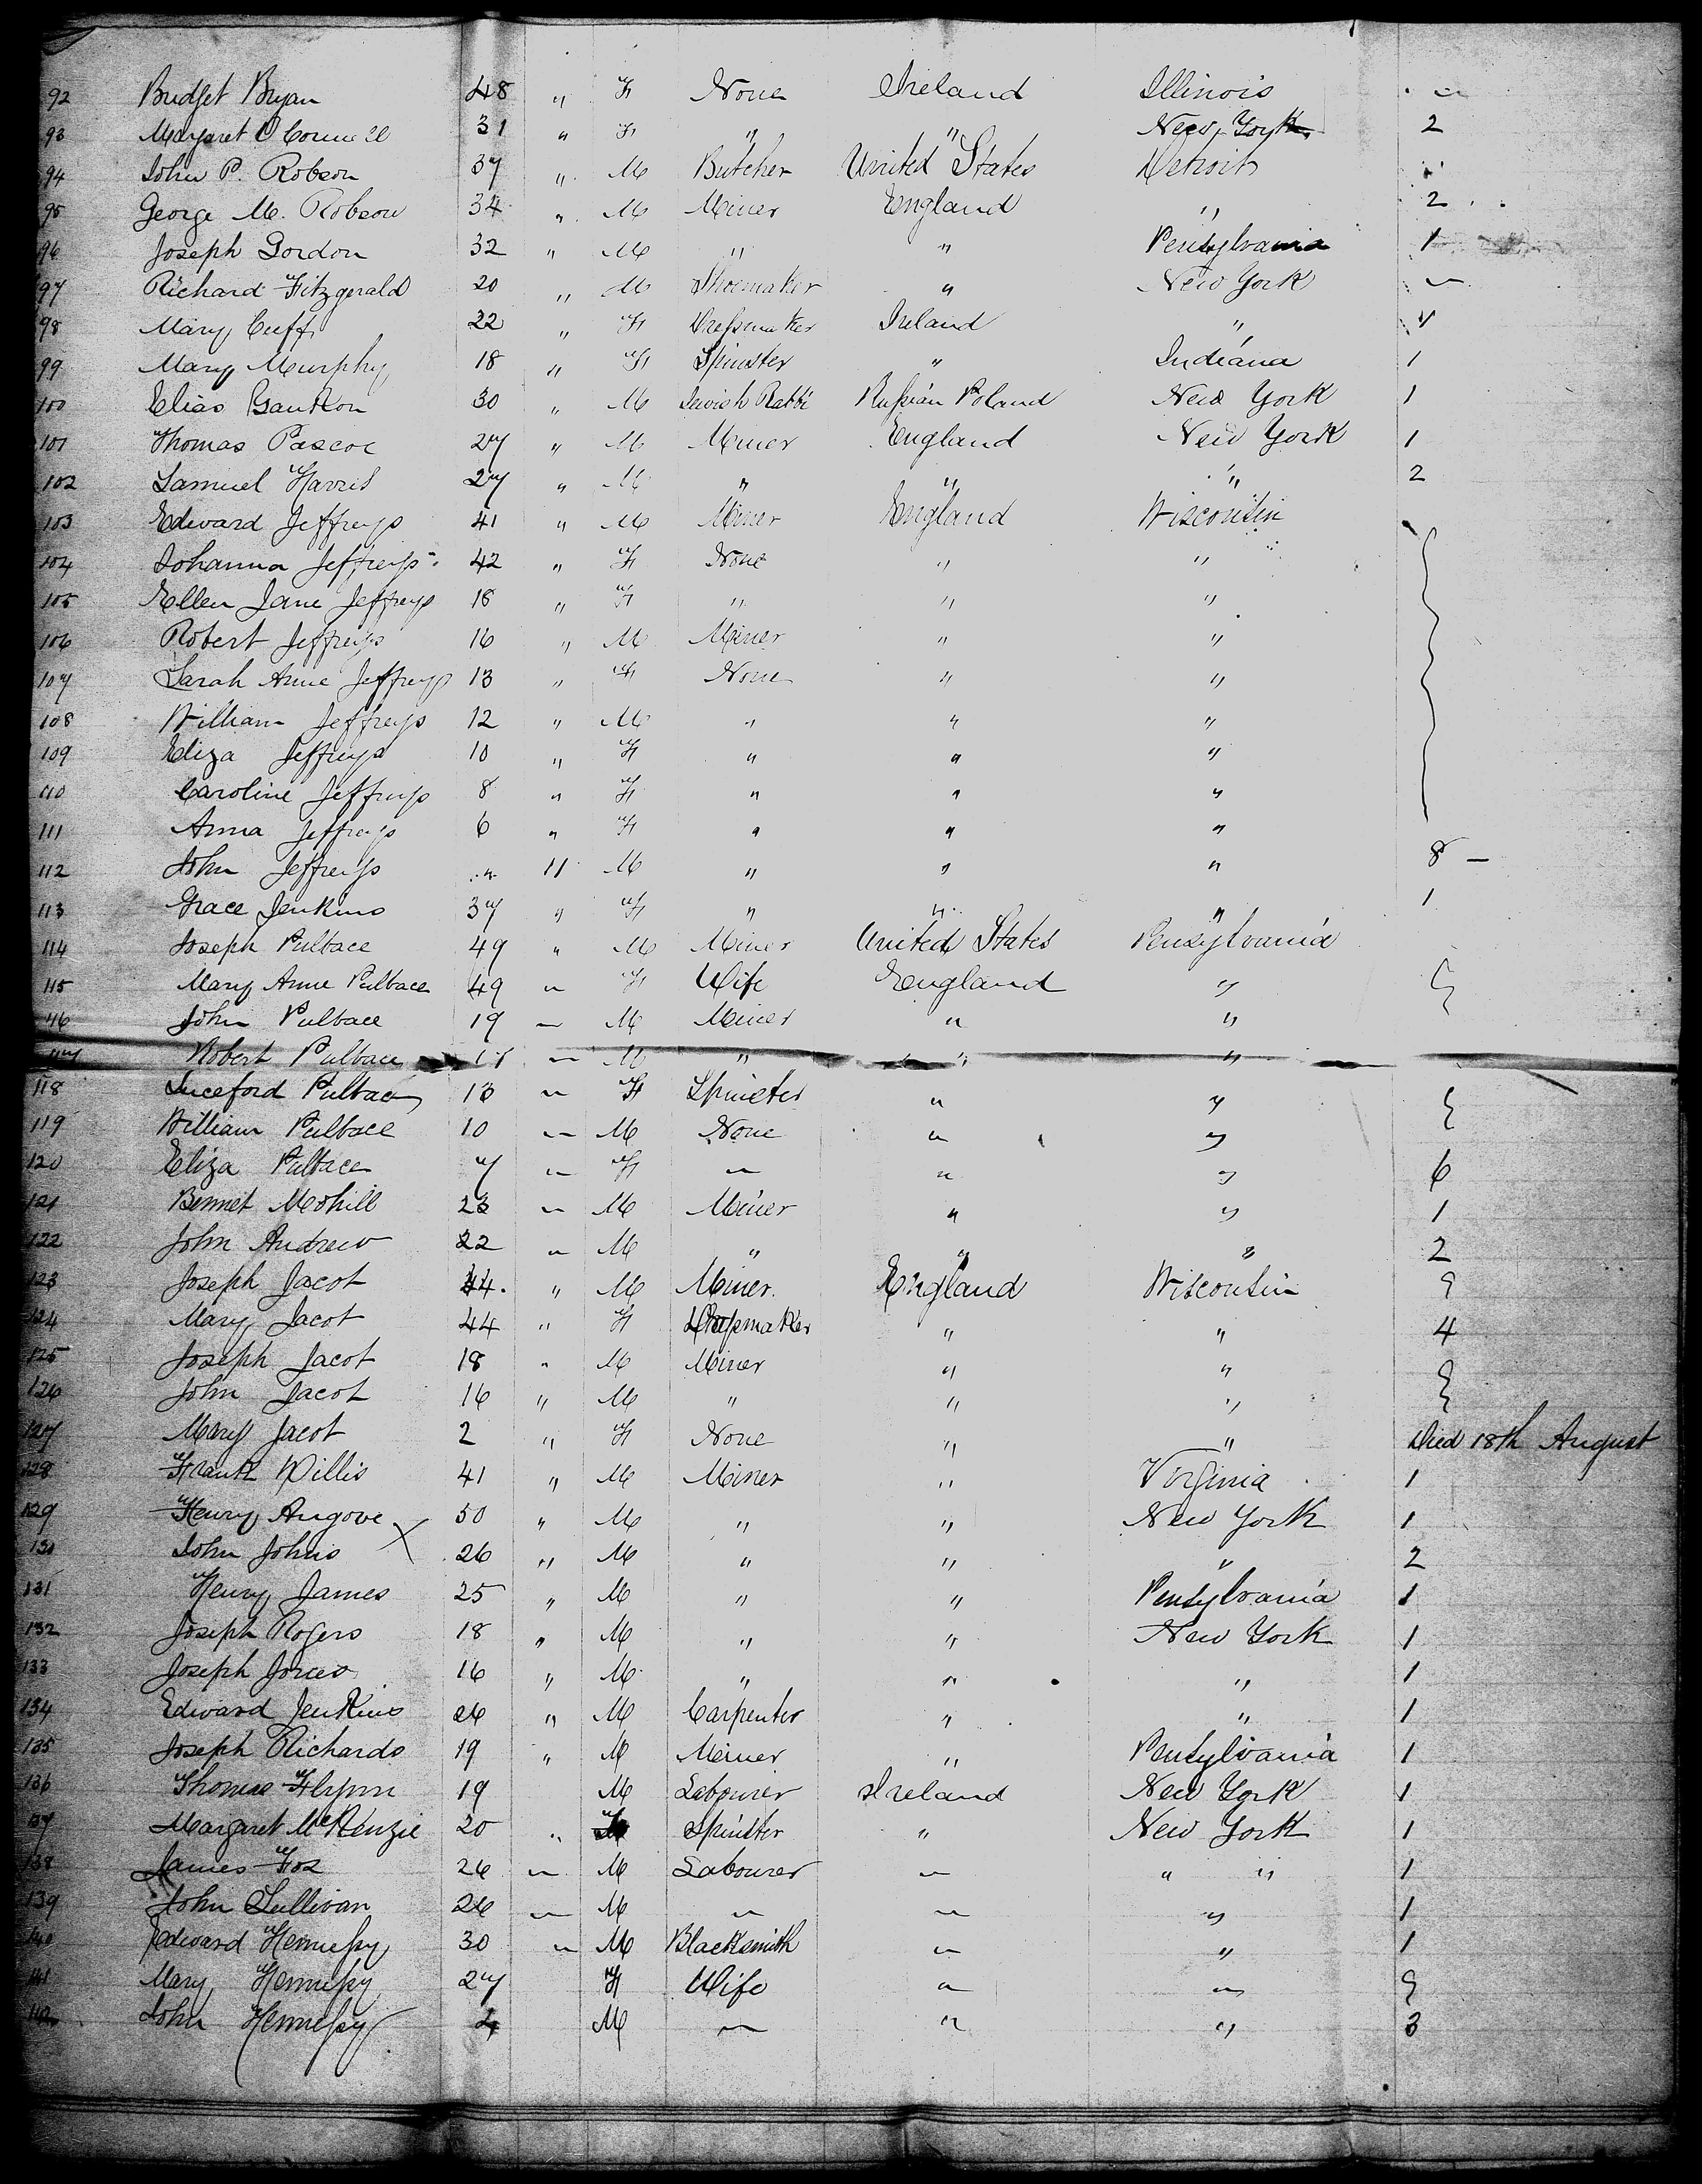 92 Bridget Bryan 48 " F None Ireland Illinois
93 Margaret O Connell 31 " F " " New York 2
94 John P. Robson 37 " M Butcher United States Detroit
95 George M. Robson 34 " M Miner England " 2
96 Joseph Gordon 32 " M " " Pensylvania 1
97 Richard Fitzgerald 20 " M Shoemaker " New York
98 Mary Cuff 22 " F Dressmaker Ireland "
99 Mary Murphy 18 " F Spinster " Indiana 1
100 Elias 30 " M Jewish Rabbi Russian Poland New York 1
101 Thomas Pascoe 27 " M Miner England New York 1
102 Samuel Harris 27 " M " " " 2
103 Edward Jeffreys 41 " M Miner England Wisconsin
104 Johanna Jeffreys 42 " F None " "
105 Ellen Jane Jeffreys 18 " F " " "
106 Robert Jeffreys 16 " M Miner " "
107 Sarah Anne Jeffreys 13 " F None " "
108 William Jeffreys 12 " M " " "
109 Eliza Jeffreys 10 " F " " "
110 Caroline Jeffreys 8 " F " " "
111 Anna Jeffreys 6 " F " " "
112 John Jeffreys " 11 M " " " 8 –
113 Grace Jenkins 37 " F " " " 1
114 Joseph Pulbace 49 " M Miner United States Pensylvania
115 Mary Anne Pulbace 49 " F Wife England "
116 John Pulbace 19 " M Miner " "
117 Robert Pulbace " M " " "
118 Luceford Pulbace 13 " F Spinster " "
119 William Pulbace 10 " M None " "
120 Eliza Pulbace 7 " F " " " 6
121 Bennet Mohill 23 " M Miner " " 1
122 John Andrew 22 " M " " " 2
123 Joseph Jacot 44. " M Miner England Wisconsin
124 Mary Jacot 44 " F Dressmaker " " 4
125 Joseph Jacot 18 " M Miner " "
126 John Jacot 16 " M " " "
127 Mary Jacot 2 " F None " " Died 18th August
128 Frank Willis 41 " M Miner " Virginia 1
129 Henry Angove 50 " M " " New York 1
130 John Johns 26 " M " " " 2
131 Henry James 25 " M " " Pensylvania 1
132 Joseph Rogers 18 " M " " New York 1
133 Joseph 16 " M " " " 1
134 Edward Jenkins 26 " M Carpenter " " 1
135 Joseph Richards 19 " M Miner " Pensylvania 1
136 Thomas Flynn 19 M Labourer Ireland New York 1
137 Margaret McKenzie 20 " F Spinster " New York 1
138 James Fox 26 " M Labourer " " " 1
139 John Sullivan 26 " M " " " 1
140 Edward Hennessy 30 " M Blacksmith " " 1
141 Mary Hennessy 27 F Wife " "
142 John Hennessy 4 M " " " 3